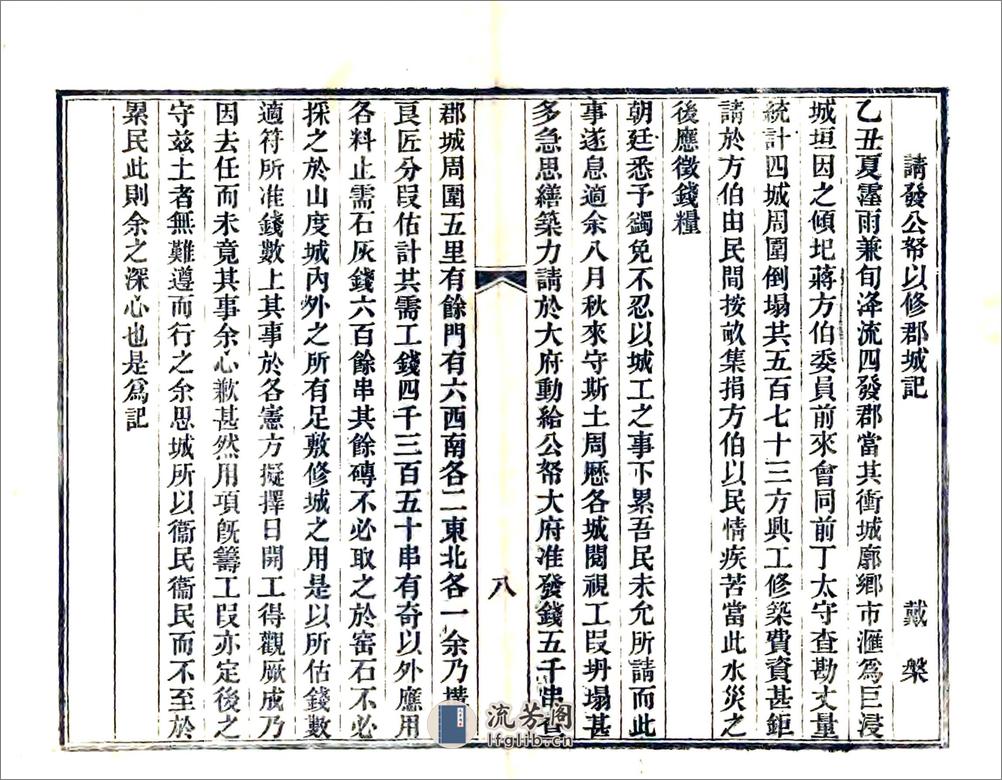 請發公帑以修郡城記 戴槃
乙丑夏霪雨兼旬洚流四發郡當其衝城廓鄉市滙爲巨浸
城垣因之傾圮蔣方伯委員前來會同前丁太守查勘丈量
統計四城周圍倒塌共五百七十三方興工修築費資甚鉅
請於方伯由民間按畝集捐方伯以民情疾苦當此水災之
後應徵錢糧
朝廷悉予蠲免不忍以城工之事下累吾民未允所請而此
事遂息適余八月秋來守斯土周歷各城閱視工段坍塌甚
多急思繕築力請於大府動給公帑大府准發錢五千串
八
郡城周圍五里有餘門有六西南各二東北各一余乃攢
良匠分段估計共需工錢四千三百五十串有奇以外應用
各料止需石灰錢六百餘串其餘磚不必取之於窑石不必
採之於山度城內外之所有足敷修城之用是以所估錢數
適符所准錢數上其事於各憲方擬擇日開工得觀厥成乃
因去任而未竟其事余心歉甚然用項既籌工段亦定後之
守兹土者無難遵而行之余思城所以衞民衞民而不至於
累民此則余之深心也是爲記
流芳閣
lfglib.cn